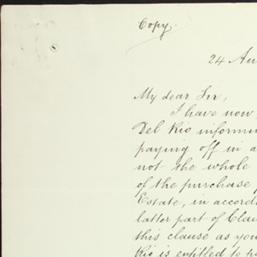 Copy.
24 Au
My dear Sir,
I have now
Del Rio informin
paying off in a
not the whole
of the purchase
Estate, in accord
latter part of Clau
this clause as you
Rio is entitled to